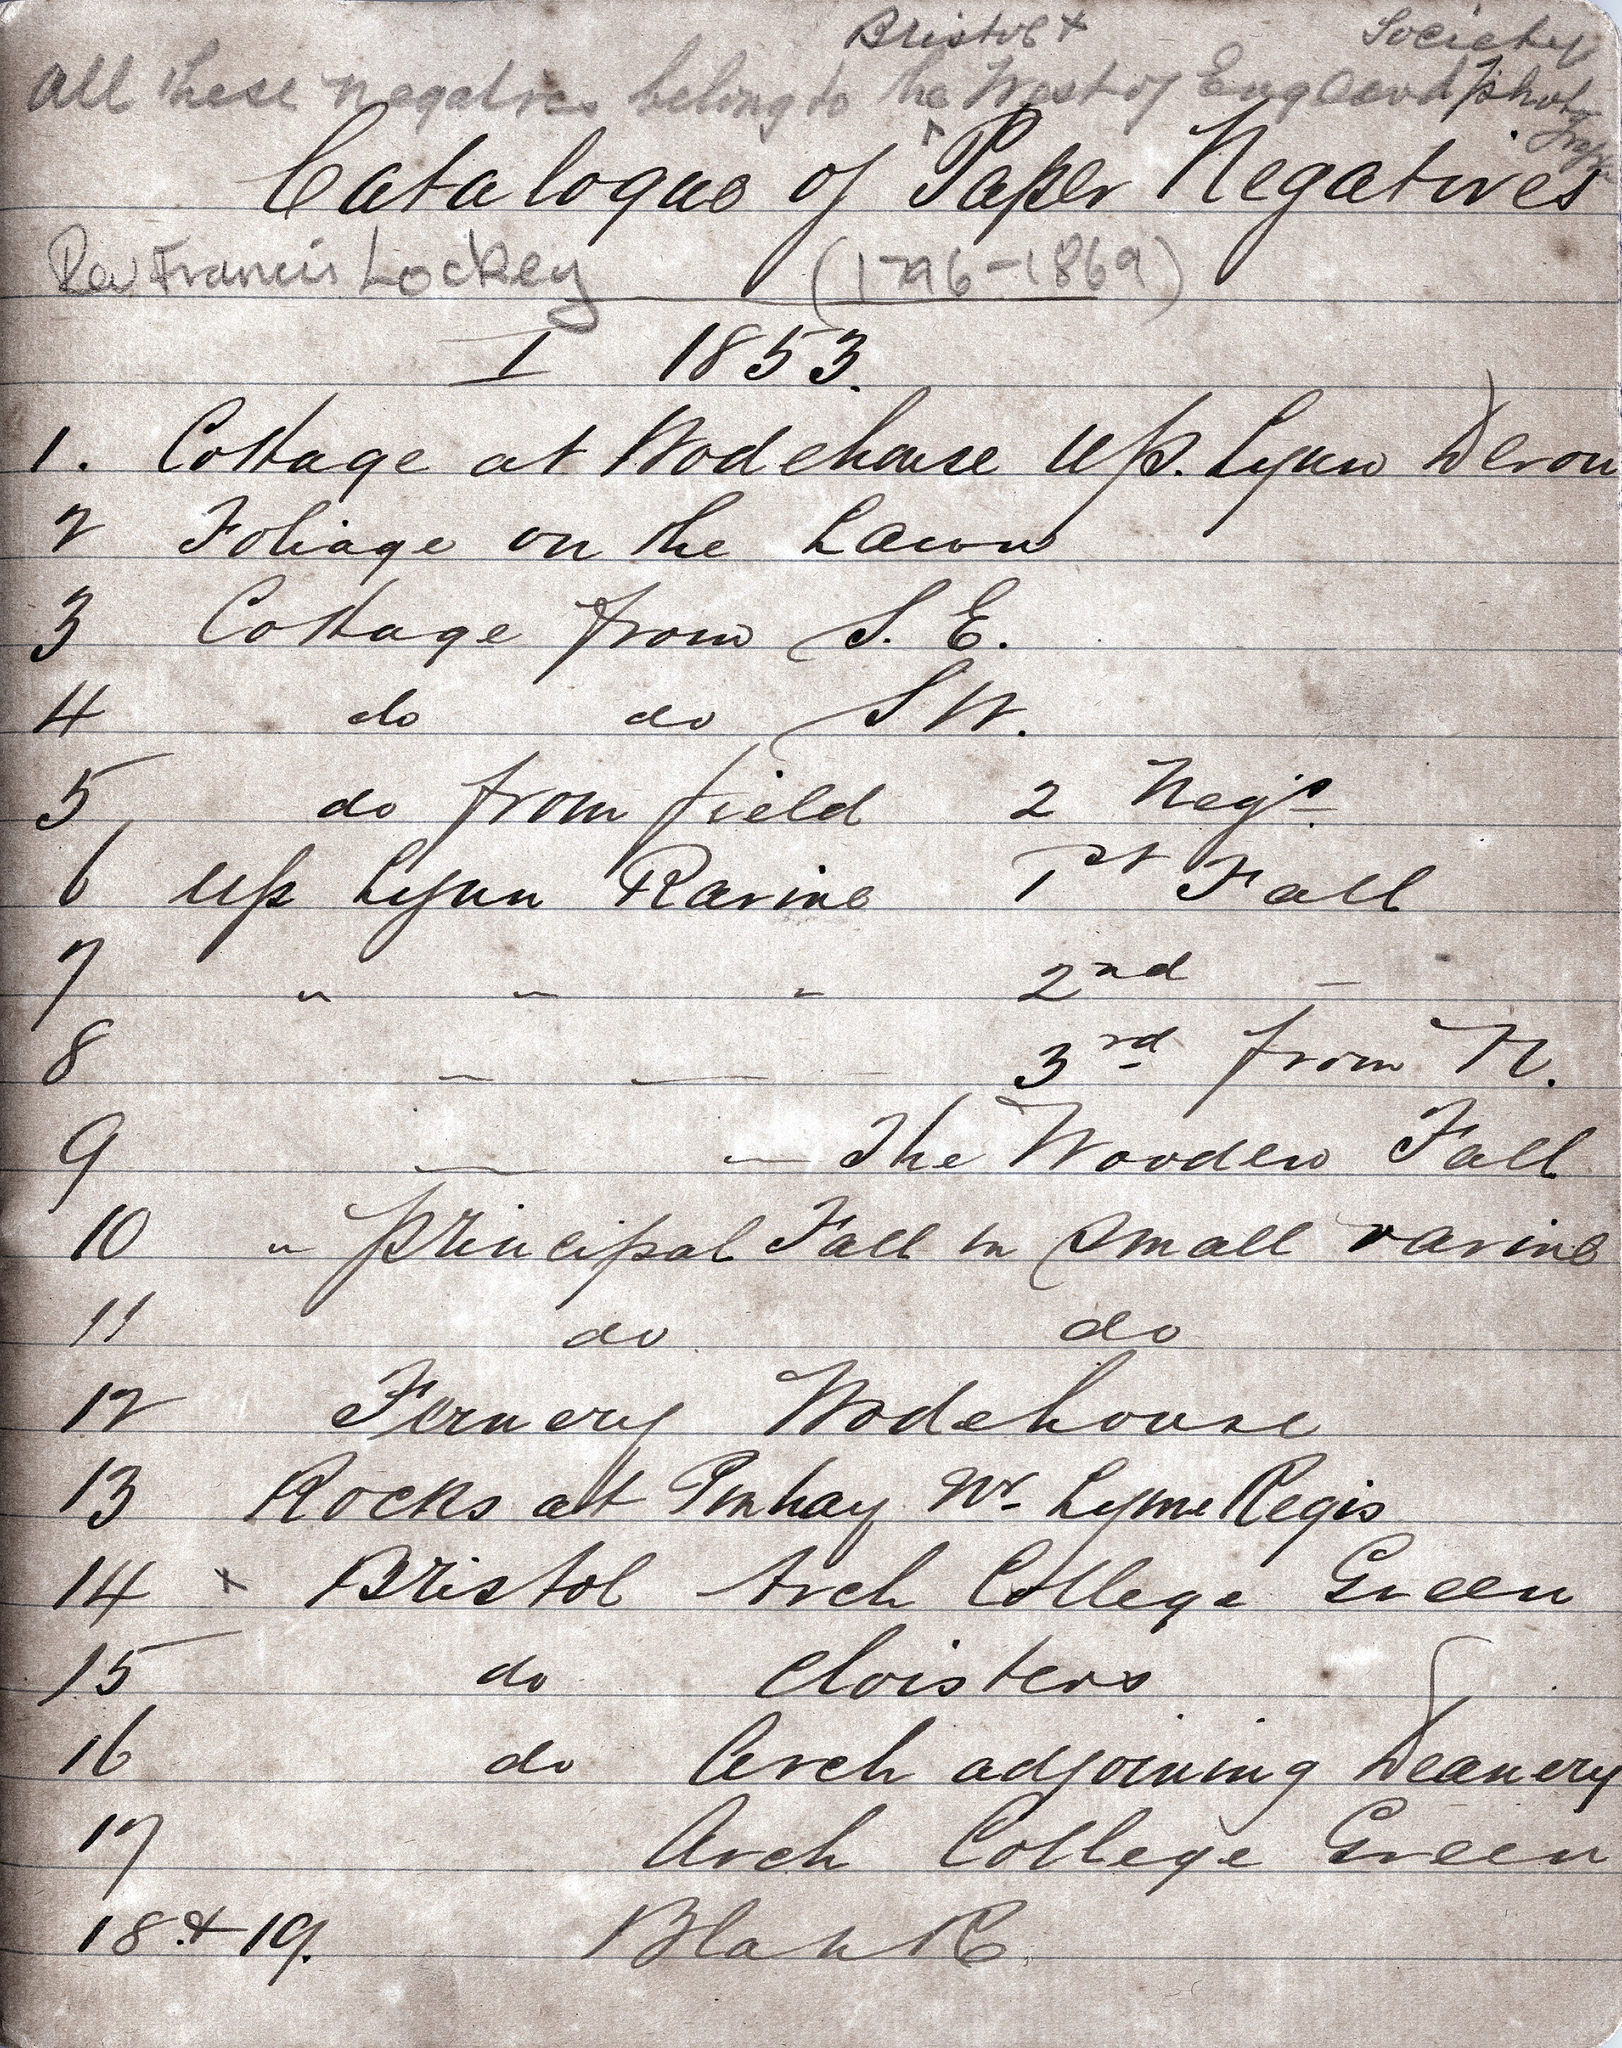 Bristol & Society
All these negatives belong to the West of England Photographic
Catalogue of Paper Negatives
Rev Francis Lockey (1796-1869)
I 1853.
1. Cottage at Wodehouse Up. Lynn Devon
2 Foliage on the Lawn
3 Cottage from S. E.
4 do do S W.
5 do from field 2 Negs.
6 Up Lynn Ravine 1st Fall
7 " " " 2nd —
8 — — — 3rd from N.
9 — — The Wooden Fall
10 " principal Fall in small ravine
11 do do
12 Fernery Wodehouse
13 Rocks at Pinhay Nr Lyme Regis
14 x Bristol Arch College Green
15 do Cloisters
16 do Arch adjoining Deanery
17 Arch College Green
18 & 19. Blank